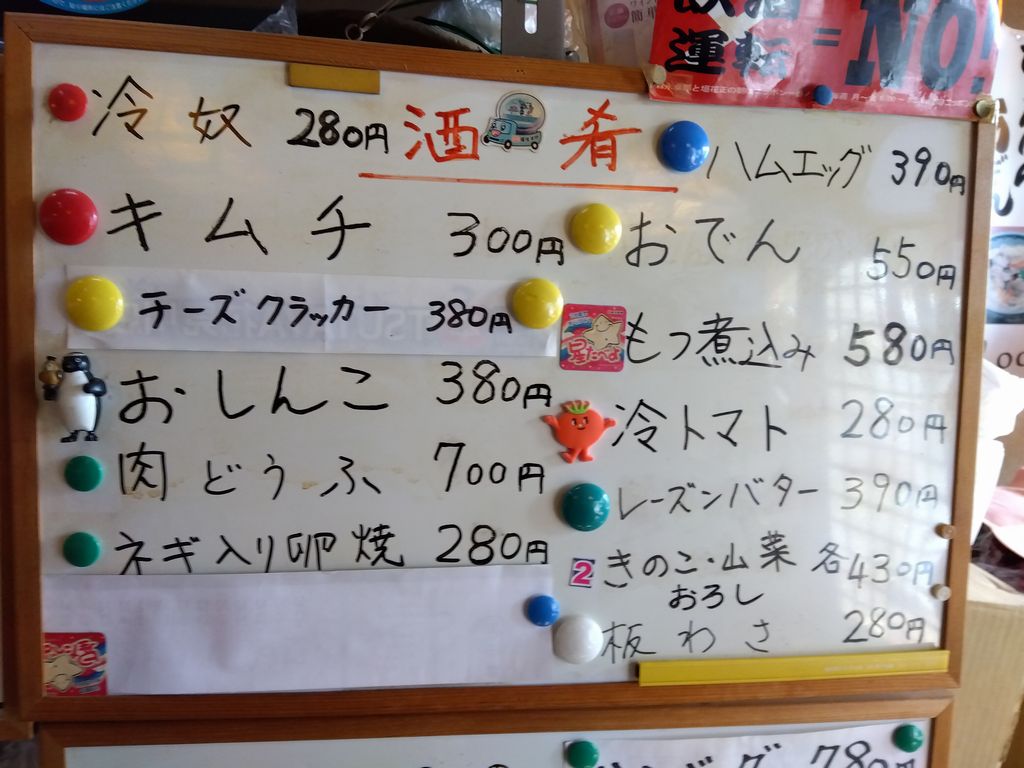 酒肴
冷奴 280円
キムチ 300円
チーズクラッカー 380円
おしんこ 380円
肉どうふ 700円
ネギ入り卵焼 280円
ハムエッグ 390円
おでん 550円
もつ煮込み 580円
冷トマト 280円
レーズンバター 390円
2
きのこ・山菜 各430円
おろし
板わさ 280円
運転=NO!
780円